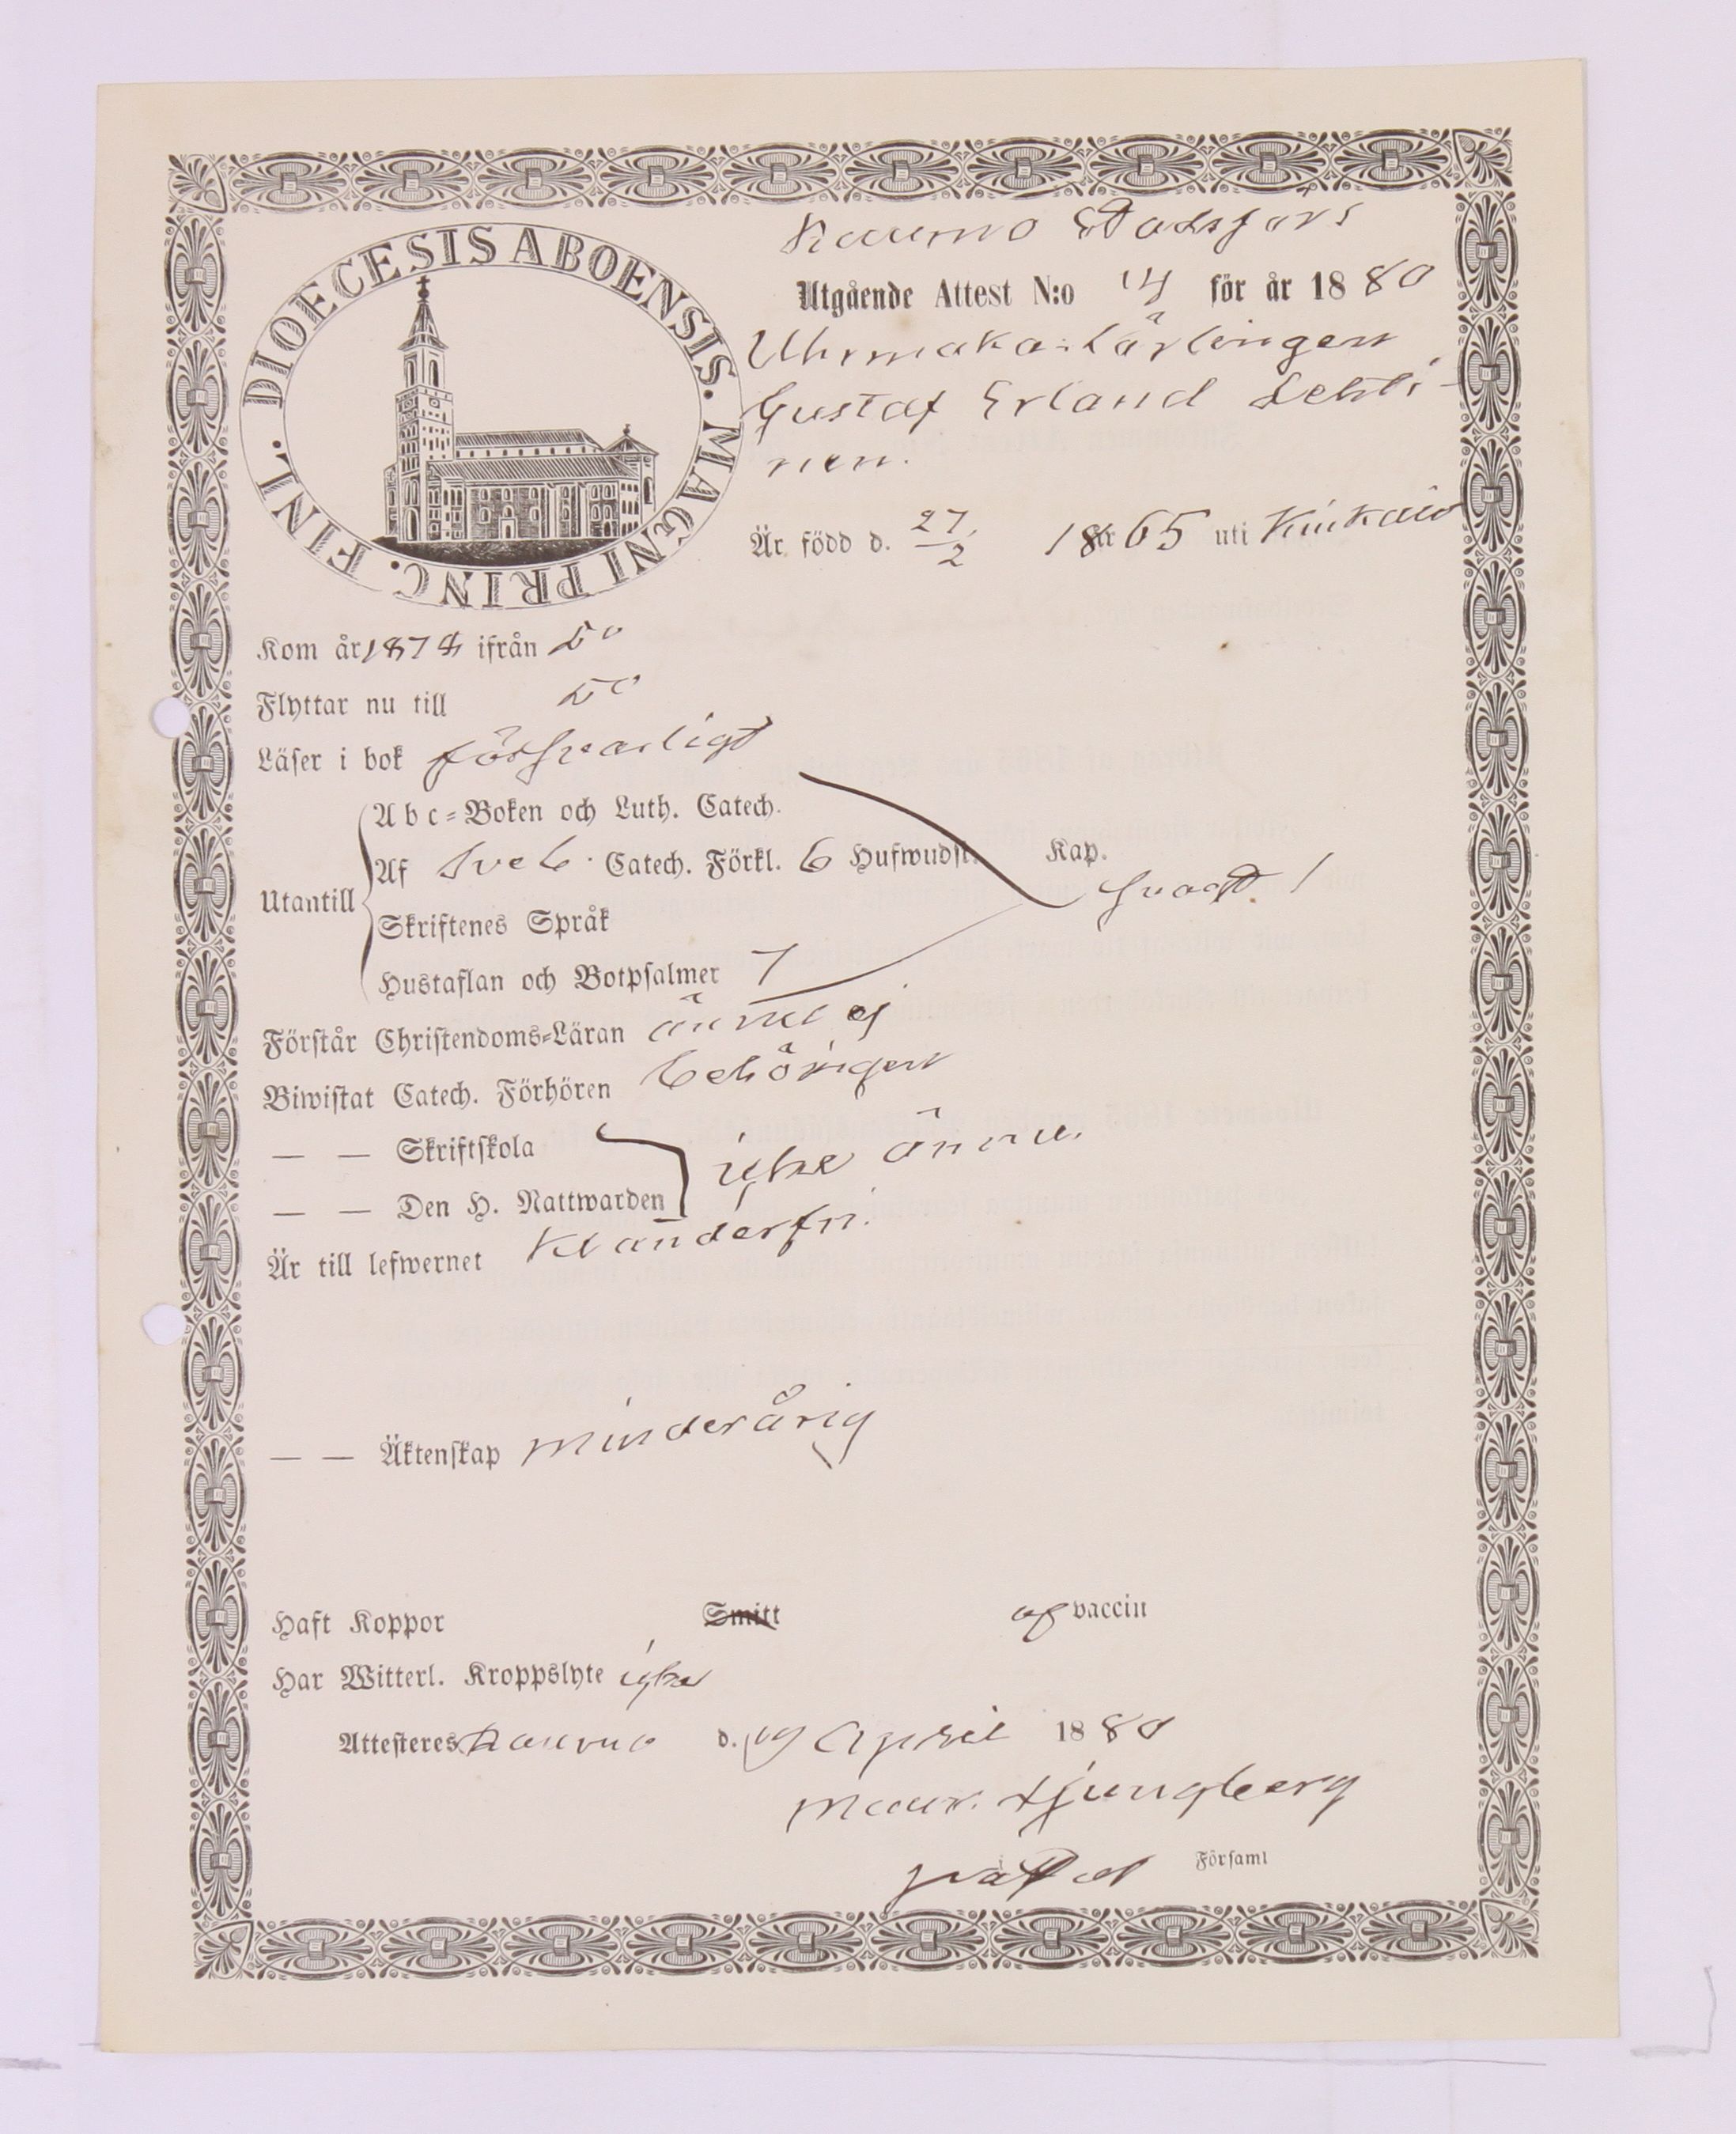 DIOECESIS ABOENSIS. MAGNI PRINC. FINL.
Raumo Stadsförs
Utgående Attest N:o 14 för år 1880
Uhrmakar Lärlingen
Gustaf Erland Lehti-
nen.
Är född d. 27/2 1865 uti Kiukais
Kom år 1878 ifrån Do
Flyttar nu till Do
Läser i bok försvarligt
Abc-Boken och Luth. Catech.
Af Sveb. Catech. Förkl. 6 Hufwudst. Kap.
Utantill
svagt
Skriftenes Språk
Hustaflan och Botpsalmer 7
Förstår Christendoms-Läran ännu ej
Biwistat Catech. Förhören behörigen
— — Skriftskola
icke ännu.
— — Den H. Nattwarden
Är till lefwernet Klanderfri.
— — Äktenskap minderårig
Haft Koppor Smitt af vaccin
Har Witterl. Kroppslyte icke
Attesteres Raumo d. 19 April 1880
Maur. Ljungberg
i Församl